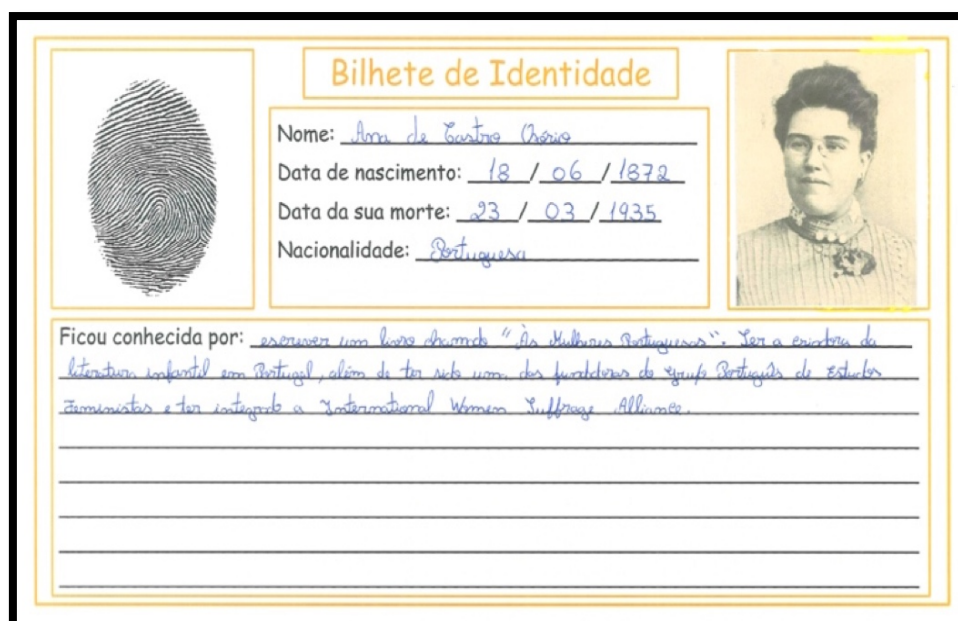 Bilhete de Identidade
Nome: Ana de Castro Osório
Data de nascimento: 18 / 06 / 1872
Data da sua morte: 23 / 03 / 1935
Nacionalidade: Portuguesa
Ficou conhecida por: escrever um livro chamado "Às Mulheres Portuguesas". Ser a criadora da
literatura infantil em Portugal, além de ter sido uma das fundadoras do Grupo Português de Estudos
Feministas e ter integrado a International Women Suffrage Alliance.